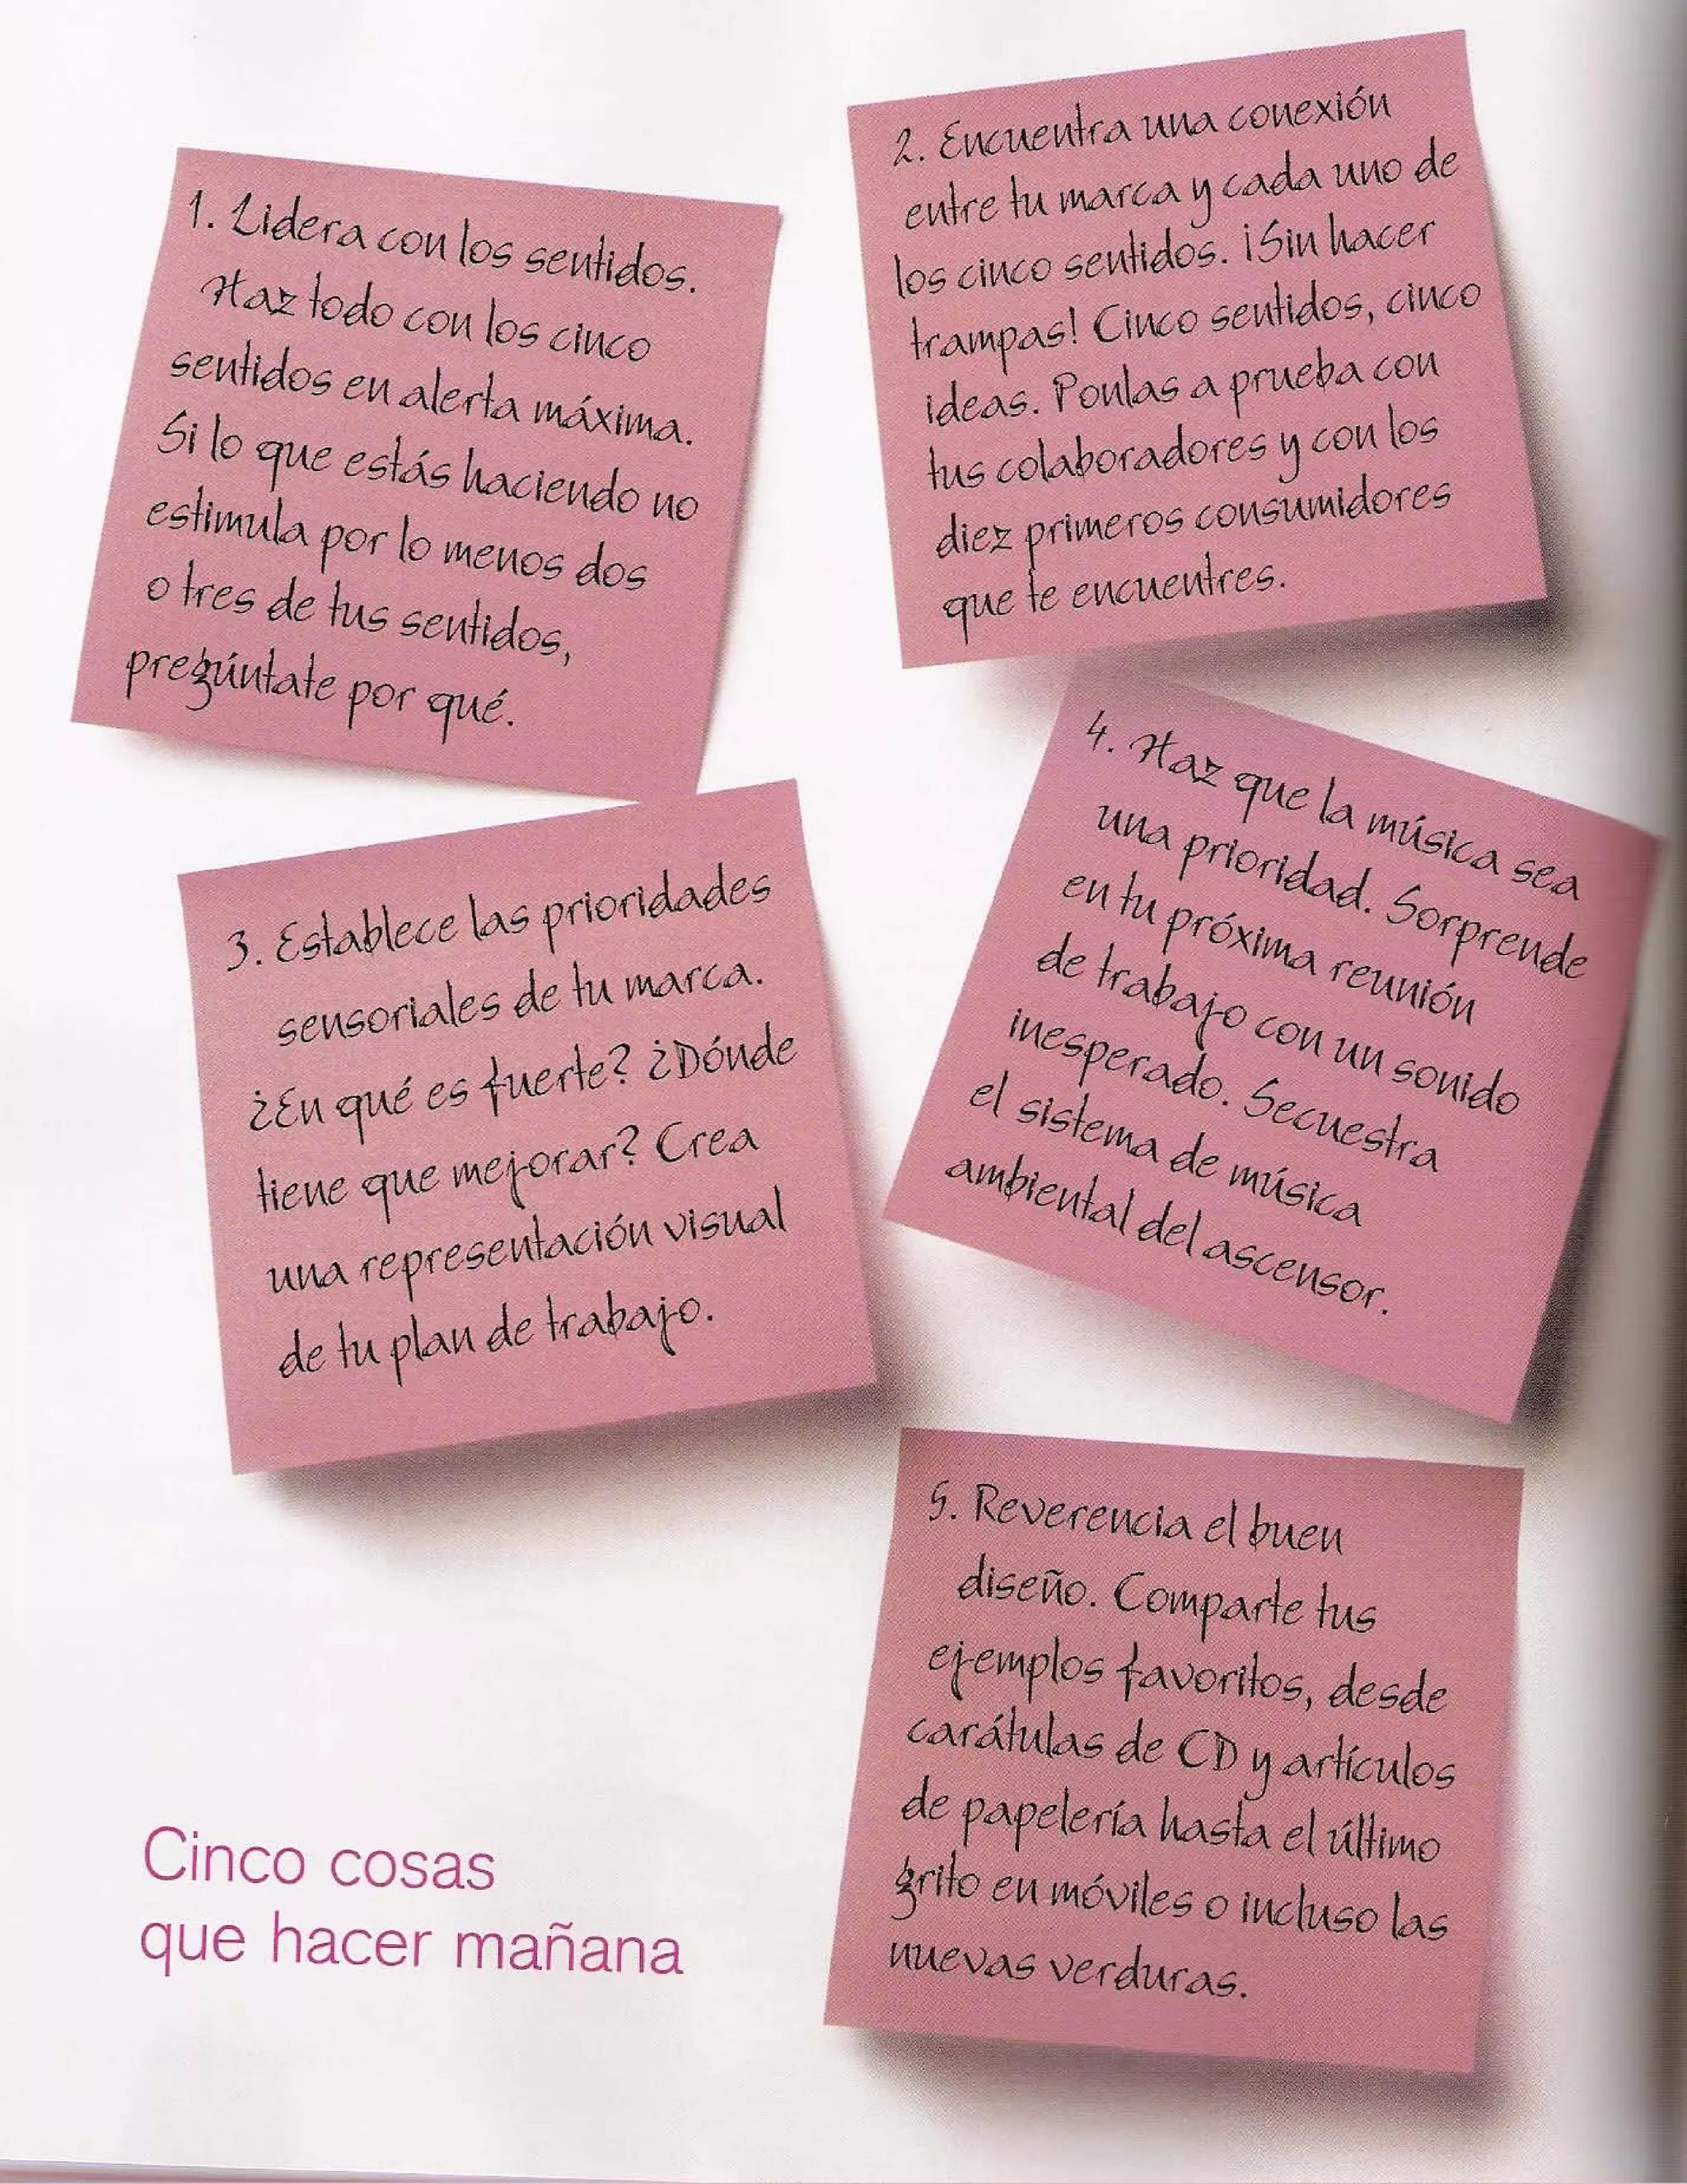 1. Lidera con los sentidos.
Haz todo con los cinco
sentidos en alerta máxima.
Si lo que estás haciendo no
estimula por lo menos dos
o tres de tus sentidos,
pregúntate por qué.
2. Encuentra una conexión
entre tu marca y cada uno de
los cinco sentidos. ¡Sin hacer
trampas! Cinco sentidos, cinco
ideas. Ponlas a prueba con
tus colaboradores y con los
diez primeros consumidores
que te encuentres.
3. Establece las prioridades
sensoriales de tu marca.
¿En qué es fuerte? ¿Dónde
tiene que mejorar? Crea
una representación visual
de tu plan de trabajo.
4. Haz que la música sea
una prioridad. Sorprende
en tu próxima reunión
de trabajo con un sonido
inesperado. Secuestra
el sistema de música
ambiental del ascensor.
5. Reverencia el buen
diseño. Comparte tus
ejemplos favoritos, desde
carátulas de CD y artículos
de papelería hasta el último
grito en móviles o incluso las
nuevas verduras.
Cinco cosas
que hacer mañana